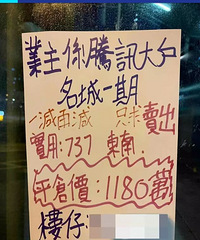 業主係騰訊大戶
名城一期
一減再減 只求賣出
實用:737 東南.
平倉價:1180萬
樓仔: